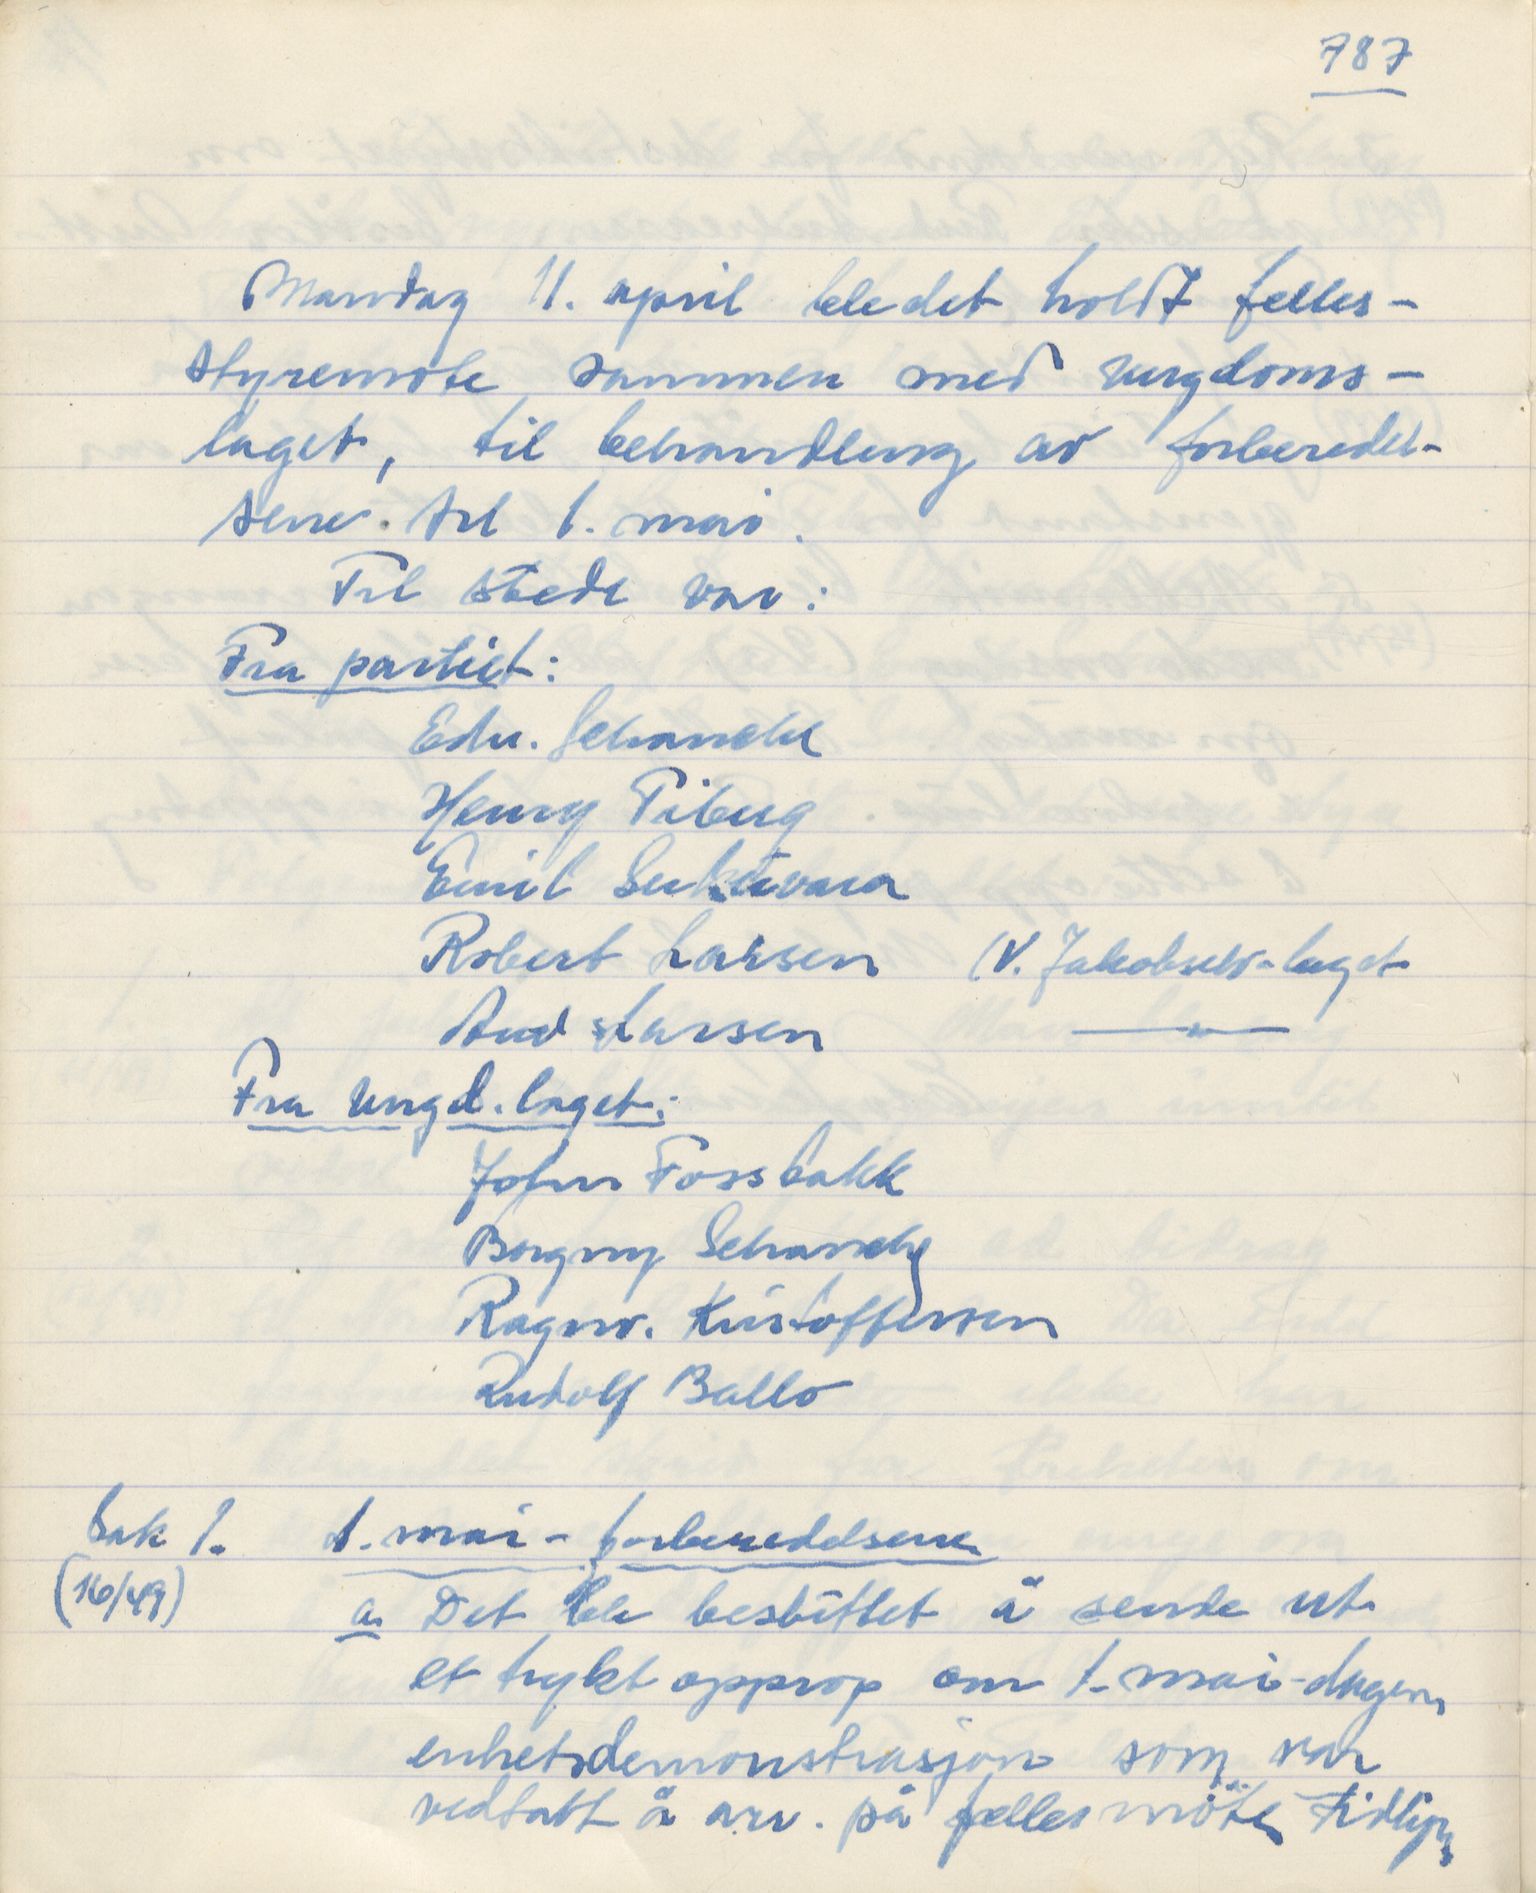 787
Mandag 11. april ble det holdt felles-
styremöte sammen med ungdoms-
laget, til behandling av forberedel-
sene til 1. mai.
Til stede var:
Fra partiet:
Edv. Schanche
Henry Piberg
Emil
Robert Larsen (V. Jakobselv-laget
Aud Larsen —"—
Fra Ungd.laget:
John Fossbakk
Borgny Schanche
Ragnv. Kristoffersen
Rudolf Ballo
Sak 1. 1. mai-forberedelsene
(16/49)
a. Det ble besluttet å sende ut
et trykt opprop om 1. mai-dagens
enhetsdemonstrasjon som var
vedtatt å arr. på fellesmöte tidligere